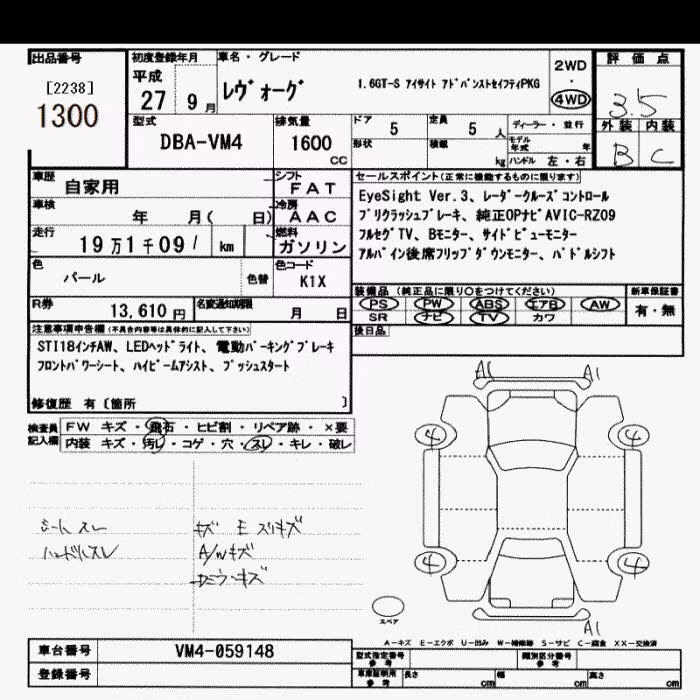 出品番号
[2238]
1300
初度登録年月
平成
27 9 月
車名・グレード
レヴォーグ
1.6GT-S アイサイト アドバンストセイフティPKG
2WD
・
4WD
評価点
3.5
外装 内装
B C
型式
DBA-VM4
排気量
1600
CC
ドア 5
定員 5 人
形状
積載 kg
ディーラー・並行
モデル年式 年
ハンドル 左・右
車歴
自家用
シフト
F A T
車検
年 月( 日)
冷房
A A C
走行
19万1千09/ km
燃料
ガソリン
色
パール
色替
色コード
K1X
R券
13,610 円
名変通知期限
月 日
セールスポイント(正常に機能するものに限ります)
EyeSight Ver.3、レーダークルーズコントロール
プリクラッシュブレーキ、純正OPナビAVIC-RZ09
フルセグTV、Bモニター、サイドビューモニター
アルパイン後席フリップダウンモニター、パドルシフト
装備品(純正品に限り○をつけてください)
PS PW ABS エアB AW
SR ナビ TV カワ
新車保証書
有・無
後日品
注意事項申告欄(不具合内容等は具体的に記入して下さい)
STI18インチAW、LEDヘッドライト、電動パーキングブレーキ
フロントパワーシート、ハイビームアシスト、プッシュスタート
修復歴 有〔箇所 〕
検査員
記入欄
FW キズ・飛石・ヒビ割・リペア跡・×要
内装 キズ・汚レ・コゲ・穴・スレ・キレ・破レ
シートスレ
ハンドルスレ
キズ E スリキズ
A/Wキズ
ドアミラーキズ
A1 A1
4 4
4 4
A1
スペア
A-キズ E-エクボ U-凹み W-補修跡 S-サビ C-腐食 XX-交換済
車台番号
VM4-059148
登録番号
型式指定番号
参考
類別区分番号
参考
車庫証明用
参考
長さ cm
幅 cm
高さ cm